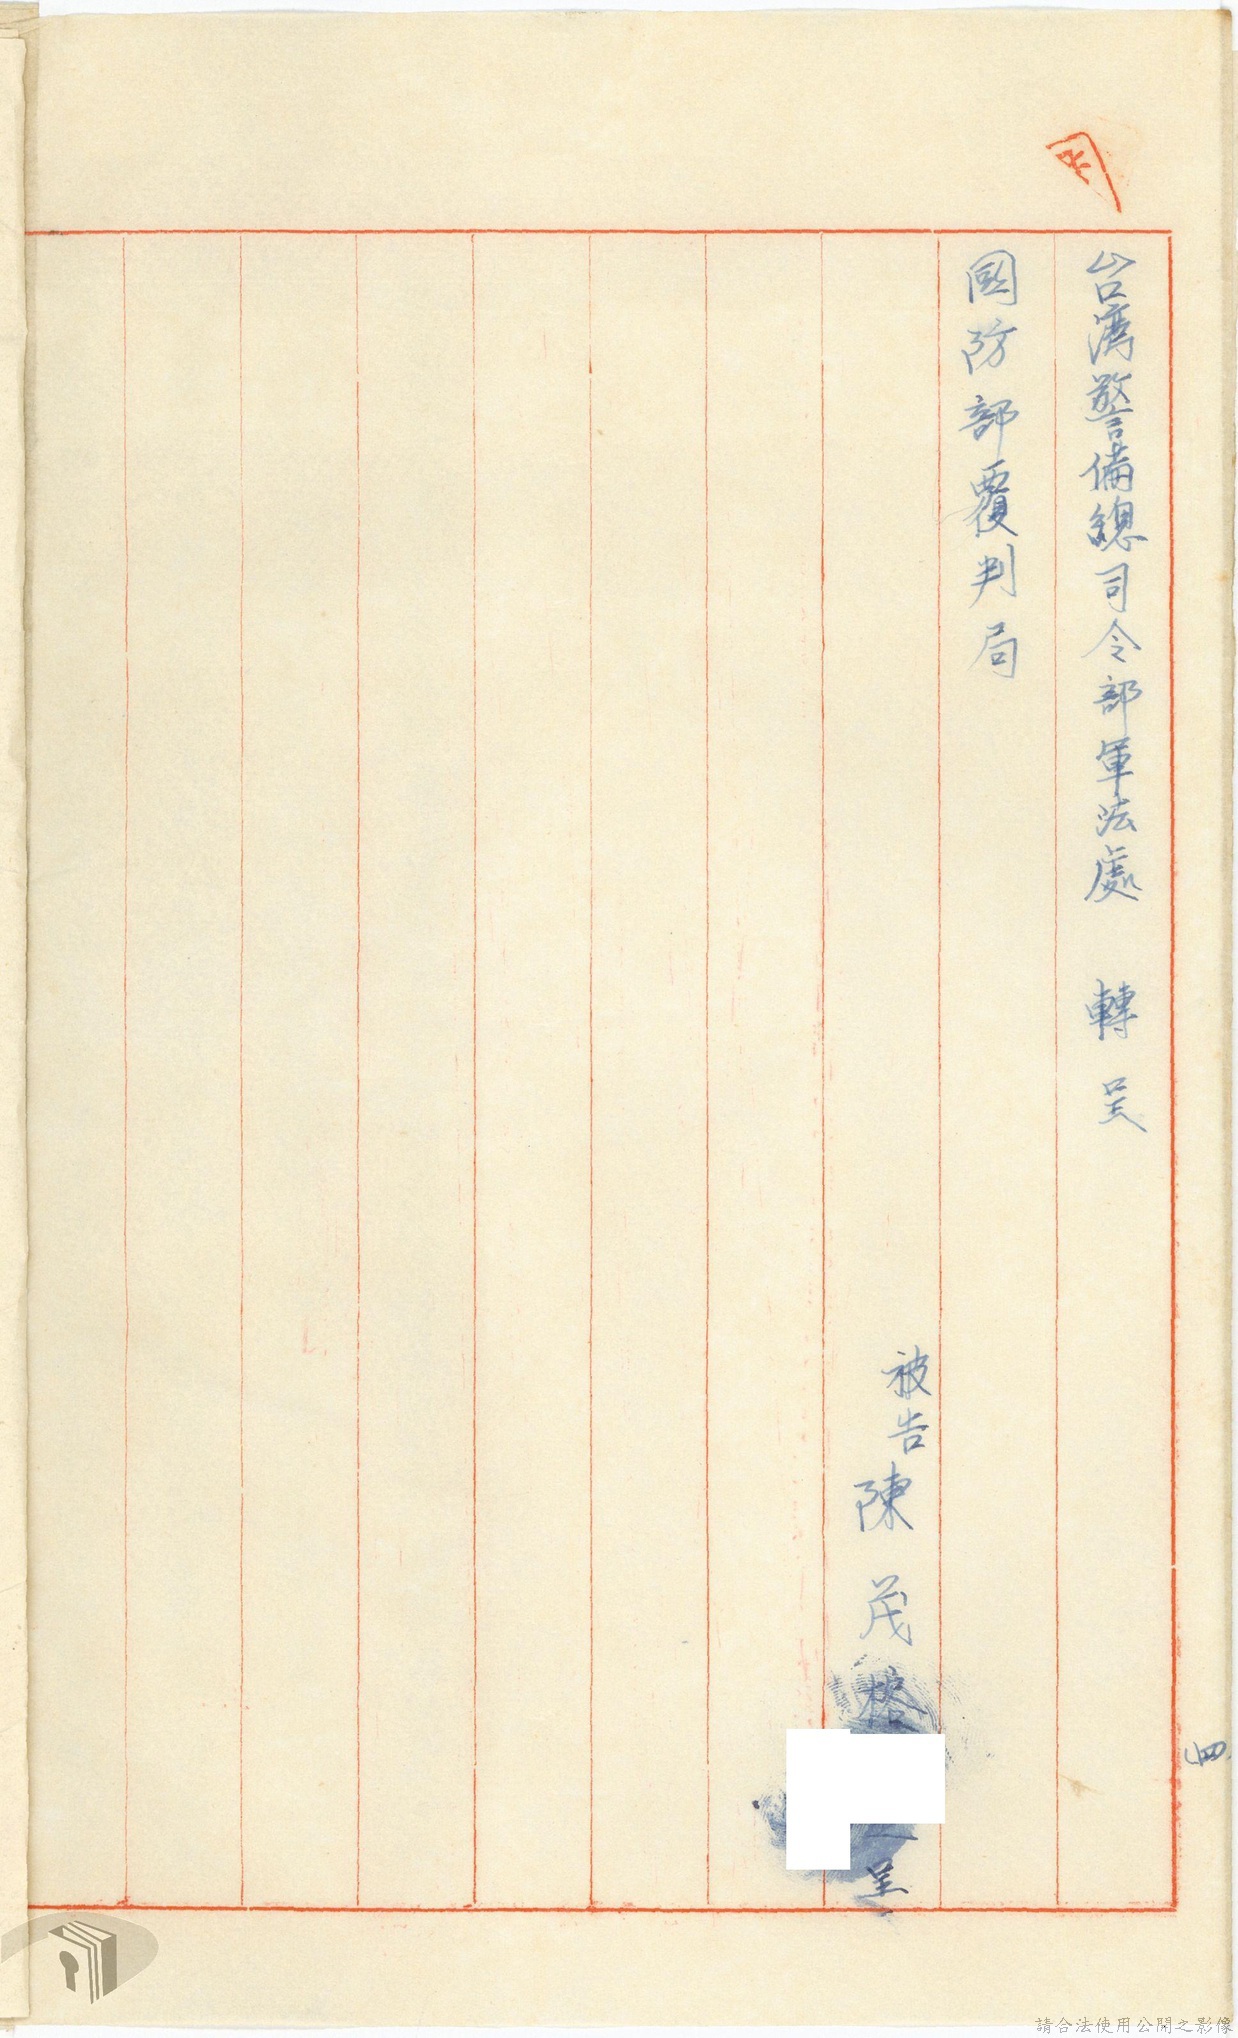 台湾警備總司令部軍法處 轉呈
國防部覆判局
被告陳茂榕
呈
四
請合法使用公開之影像